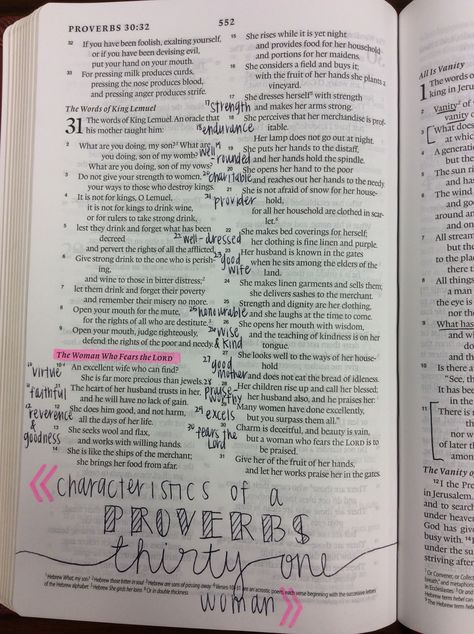 PROVERBS 30:32
552
32 If you have been foolish, exalting yourself,
or if you have been devising evil,
put your hand on your mouth.
33 For pressing milk produces curds,
pressing the nose produces blood,
and pressing anger produces strife.
The Words of King Lemuel
31 The words of King Lemuel. An oracle that
his mother taught him:
2 What are you doing, my son? What are
you doing, son of my womb?
What are you doing, son of my vows?
3 Do not give your strength to women,
your ways to those who destroy kings.
4 It is not for kings, O Lemuel,
it is not for kings to drink wine,
or for rulers to take strong drink,
5 lest they drink and forget what has been
decreed
and pervert the rights of all the afflicted.
6 Give strong drink to the one who is perish-
ing,
and wine to those in bitter distress;
7 let them drink and forget their poverty
and remember their misery no more.
8 Open your mouth for the mute,
for the rights of all who are destitute.
9 Open your mouth, judge righteously,
defend the rights of the poor and needy.
The Woman Who Fears the LORD
10 An excellent wife who can find?
She is far more precious than jewels.
11 The heart of her husband trusts in her,
and he will have no lack of gain.
12 She does him good, and not harm,
all the days of her life.
13 She seeks wool and flax,
and works with willing hands.
14 She is like the ships of the merchant;
she brings her food from afar.
10 virtue
11 faithful
12 reverence
& goodness
15 She rises while it is yet night
and provides food for her household
and portions for her maidens.
16 She considers a field and buys it;
with the fruit of her hands she plants a
vineyard.
17 She dresses herself with strength
and makes her arms strong.
18 She perceives that her merchandise is prof-
itable.
Her lamp does not go out at night.
19 She puts her hands to the distaff,
and her hands hold the spindle.
20 She opens her hand to the poor
and reaches out her hands to the needy.
21 She is not afraid of snow for her house-
hold,
for all her household are clothed in scar-
let.
22 She makes bed coverings for herself;
her clothing is fine linen and purple.
23 Her husband is known in the gates
when he sits among the elders of the
land.
24 She makes linen garments and sells them;
she delivers sashes to the merchant.
25 Strength and dignity are her clothing,
and she laughs at the time to come.
26 She opens her mouth with wisdom,
and the teaching of kindness is on her
tongue.
27 She looks well to the ways of her house-
hold
and does not eat the bread of idleness.
28 Her children rise up and call her blessed;
her husband also, and he praises her:
29 Many women have done excellently,
but you surpass them all.
30 Charm is deceitful, and beauty is vain,
but a woman who fears the LORD is to
be praised.
31 Give her of the fruit of her hands,
and let her works praise her in the gates.
17 strength
18 endurance
19 well
rounded
20 charitable
21 provider
22 well-dressed
23 good
wife
25 honourable
26 wise,
& kind
27 good
mother
28 praise-
worthy
29 excels
30 fears the
Lord
characteristics of a
PROVERBS
thirty one
woman
All Is Vanity
1 The words
king in Jerus
2 Vanity of
vanity o
3 What does
at which
4 A generati
but the
5 The sun ri
and has
6 The wind
and goe
around ar
and on
7 All stream
but the
to the pla
there th
8 All things
a man
the eye is
nor the
9 What has
and wh
and the
10 Is there a
"See, th
It has bee
in the
11 There is
nor
of later
amon
The Vanity of
12 I the Pre
in Jerusalem
and to search
under heaven
God has give
busy with.
under the su
striving after